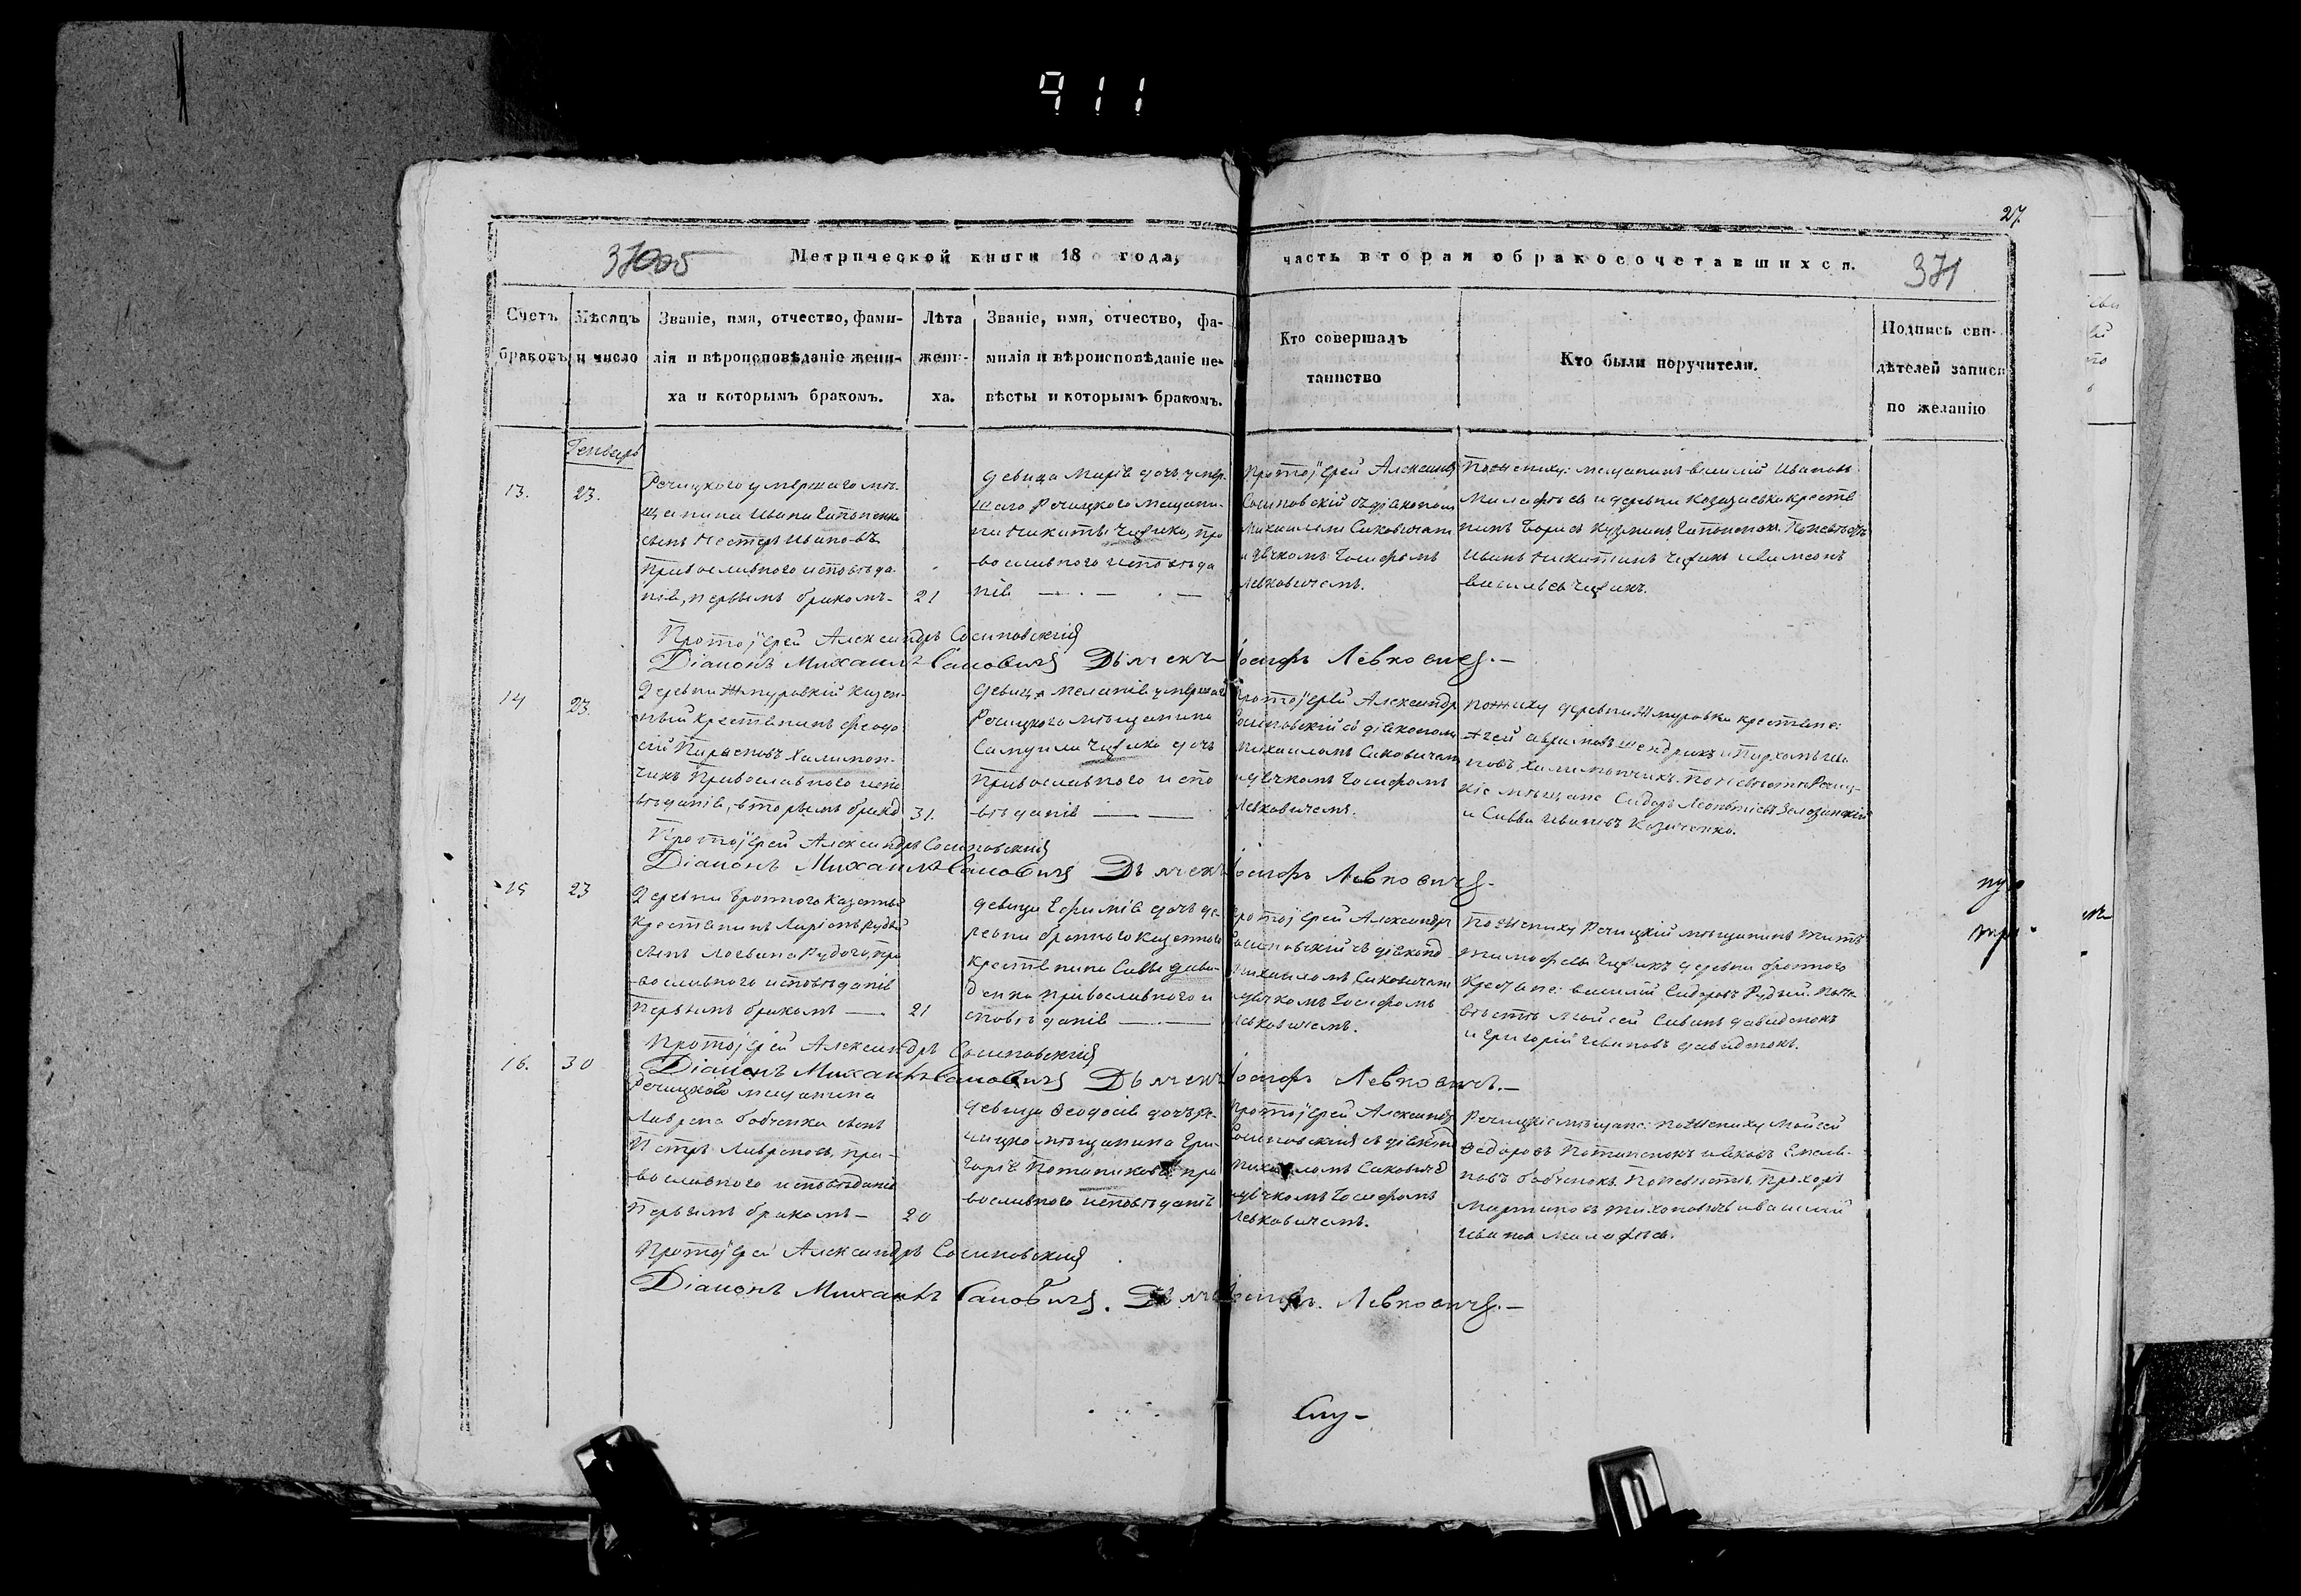 911
27.
Метрической книги 18 года,
часть вторая о бракосочетавшихся.
371
Счетъ браковъ
Мѣсяцъ и число
Званіе, имя, отчество, фами-
лія и вѣроисповѣданіе жени-
ха и которымъ бракомъ.
Лѣта
жени-
ха.
Званіе, имя, отчество, фа-
милія и вѣроисповѣданіе не-
вѣсты и которымъ бракомъ.
Кто совершалъ
таинство
Кто были поручители.
Подпись сви-
дѣтелей записи
по желанію
Генварь
13.
23.
Речицкого умершаго мѣ-
щанина Ивана
сынъ Нестеръ Ивановъ
Православного исповѣда-
нія, первымъ бракомъ-
21
девица Марія дочь умер-
шаго Речицкого мещани-
на Никиты Чуфика, пра
вославного исповѣда
нія
Протоіерей Александр
Сосиновскій съ діакономъ
Михаиломъ Саковичемъ
и дьячкомъ Іосифомъ
Левковичемъ.
По жениху: мещанинъ Василій Ивановъ
Малафѣевъ и деревни крестя
нинъ Борисъ Кузминъ По невѣстѣ
Иванъ Никитинъ Чуфикъ и Симеонъ
Васильевъ Чуфикъ.
Протоіерей Александръ Сосиновскій
Діаконъ Михаилъ Саковичъ Дьячекъ Іосифъ Левковичъ.
14
23.
Деревни Жмуровки казен-
ный крестянинъ Феодо
сій Халимон-
чикъ Православного испо
вѣданія, вторымъ брако
31.
девица Меланія умершаго
Речицкого мѣщанина
Самуила Чуфика дочь
Православного испо
вѣданія
Протоіерей Александр
Сосиновскій съ діакономъ
Михаиломъ Саковичемъ
и дьячкомъ Іосифомъ
Левковичемъ.
По жениху деревни Жмуровки крестяне:
Авраамовъ Шендрикъ и Пархомъ Ива
новъ Халимончикъ. По невѣсте Речиц-
кіе мѣщане Сидоръ Леонтіевъ
и Савва Ивановъ Козаченко.
Протоіерей Александръ Сосиновскій
Діаконъ Михаилъ Саковичъ Дьячекъ Іосифъ Левковичъ.
15
23
Деревни Бронного казенный
крестянинъ Ларіонъ Рудый
сынъ Логвина Рудого, пра
вославного исповѣданія
Первымъ бракомъ
21
девица Ефимія дочь де-
ревни Бронного казенного
крестянина Саввы Дави-
денка Православного и
сповѣданія
Протоіерей Александръ
Сосиновскій съ діаконо
Михаиломъ Саковичемъ
и дьячкомъ Іосифомъ
Левковичемъ.
По жениху Речицкій мѣщанинъ Титъ
Тимофеевъ Чуфикъ деревни Бронного
крестяне: Василій Сидоровъ Рудый. По не-
вѣстѣ Моисей Савинъ Давиденокъ
и Григорій Ивановъ Давиденокъ.
Протоіерей Александръ Сосиновскій
Діаконъ Михаилъ Саковичъ Дьячекъ Іосифъ Левковичъ.
16.
30
Речицкого мещанина
Лаврена Бобченка сынъ
Петръ Лавреновъ, пра-
вославного исповѣданія
Первымъ бракомъ
20
девица Феодосія дочь ре-
чицко мѣщанина Гри-
горія Потапикова пра
вославного исповѣданія
Протоіерей Александр
Сосиновскій съ діаконо
Михаиломъ Саковиче
и дьячкомъ Іосифомъ
Левковичемъ.
Речицкіе мѣщане: по жениху Моисей
Федоровъ Потапенокъ и Яковъ Емелья-
новъ Бобченокъ. По невѣстѣ, Прохоръ
Мартиновъ Тихоновичъ и Василий
Ивановъ Малафѣев.
Протоіерей Александръ Сосиновскій
Діаконъ Михаилъ Саковичъ. Дьячекъ Іосифъ. Левковичъ.